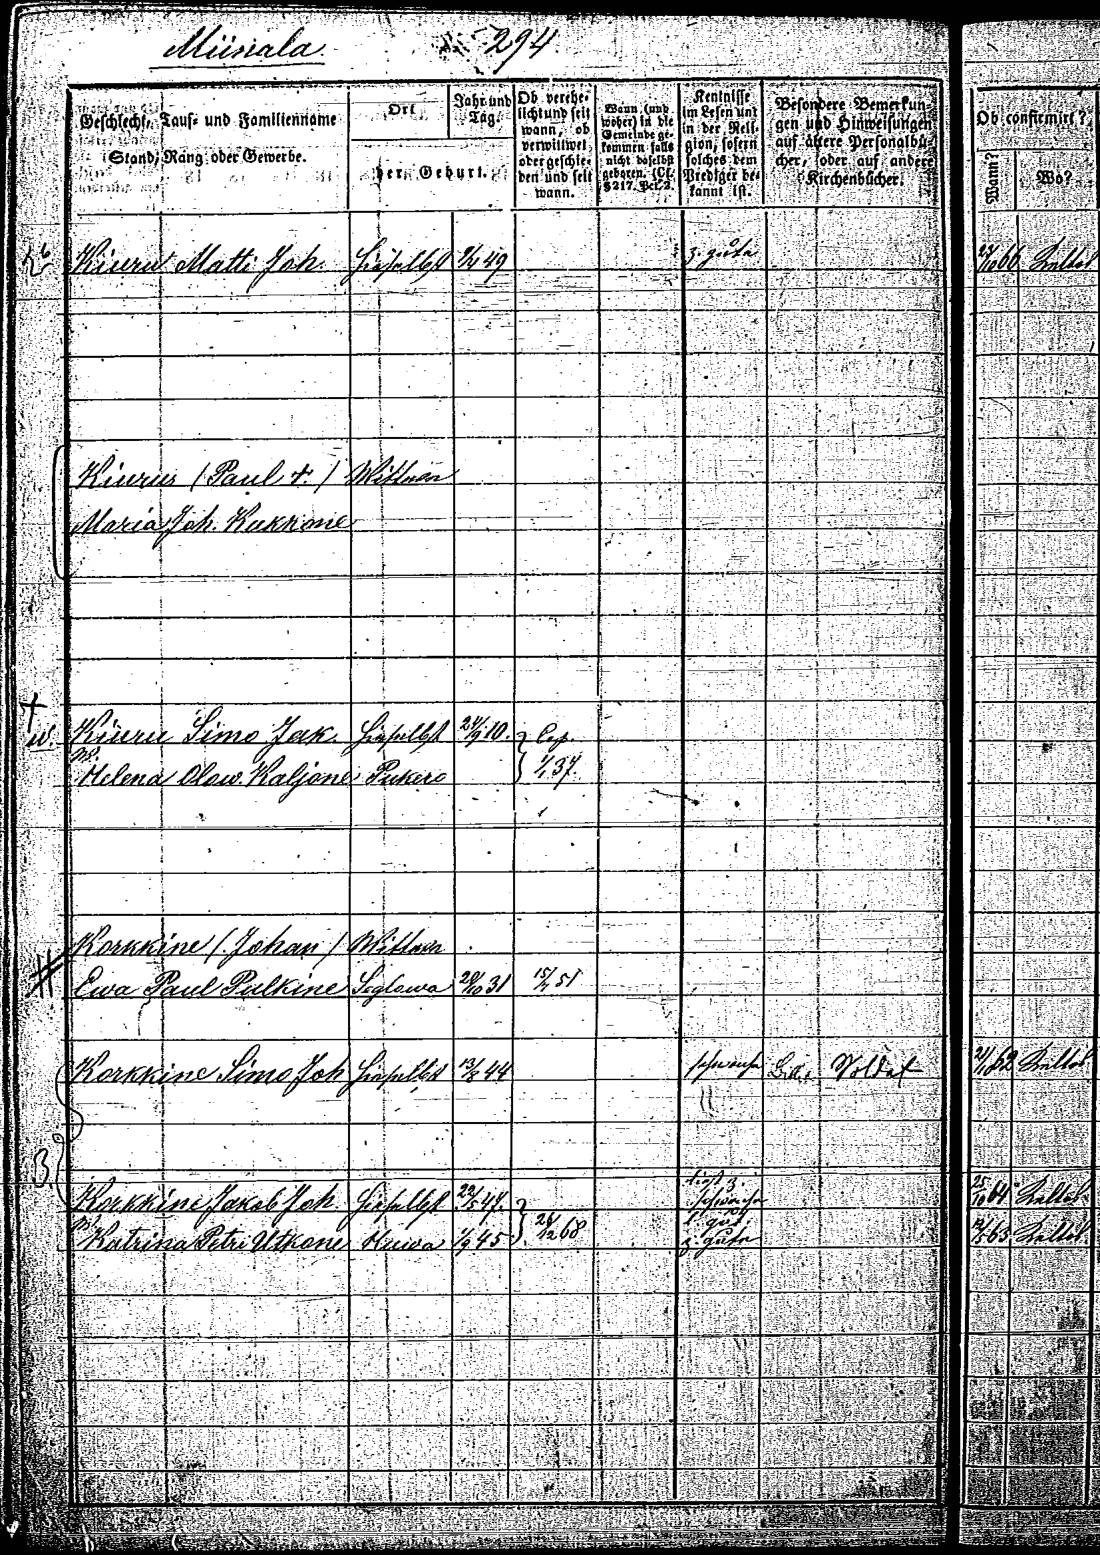 Miinala 294
Geschlechts-, Tauf- und Familienname
Stand, Rang oder Gewerbe.
Ort
Jahr und Tag.
der Geburt.
Ob verehe-
licht und seit
wann, ob
verwittwet
oder geschie-
den und seit
wann.
Wann (und
woher) in die
Gemeinde ge-
kommen falls
nicht daselbst
geboren.
§ 217. Pct. 2.
Kentnisse
im Lesen und
in der Reli-
gion, sofern
solches dem
Prediger be-
kannt ist.
Besondere Bemerkun-
gen und Hinweisungen
auf ältere Personalbü-
cher, oder auf andere
Kirchenbücher.
Ob confirmirt?
Wann?
Wo?
Kiuru Matti Joh. hieselbst 49 z. gute 66
Kiurus (Paul +.) Wittwe
Maria Joh. Kukkone
Kiuru Simo Jak. hieselbst 24/9 10. Cop.
W. Helena Olow. Kaljone Pukero 1/1 37.
Korkkine (Johan) Wittwe
Ewa Paul Pulkine 20/10 31 15/1 51
Korkkine Simo Joh hieselbst 13/8 44 schwache Soldat 62
3.
Korkkine Jakob Joh. hieselbst 22/5 47. liest z. schwach 25/10 64
W. Katrina Petri Utkone 1/9 45 26/12 68 l. gut z. gute 63